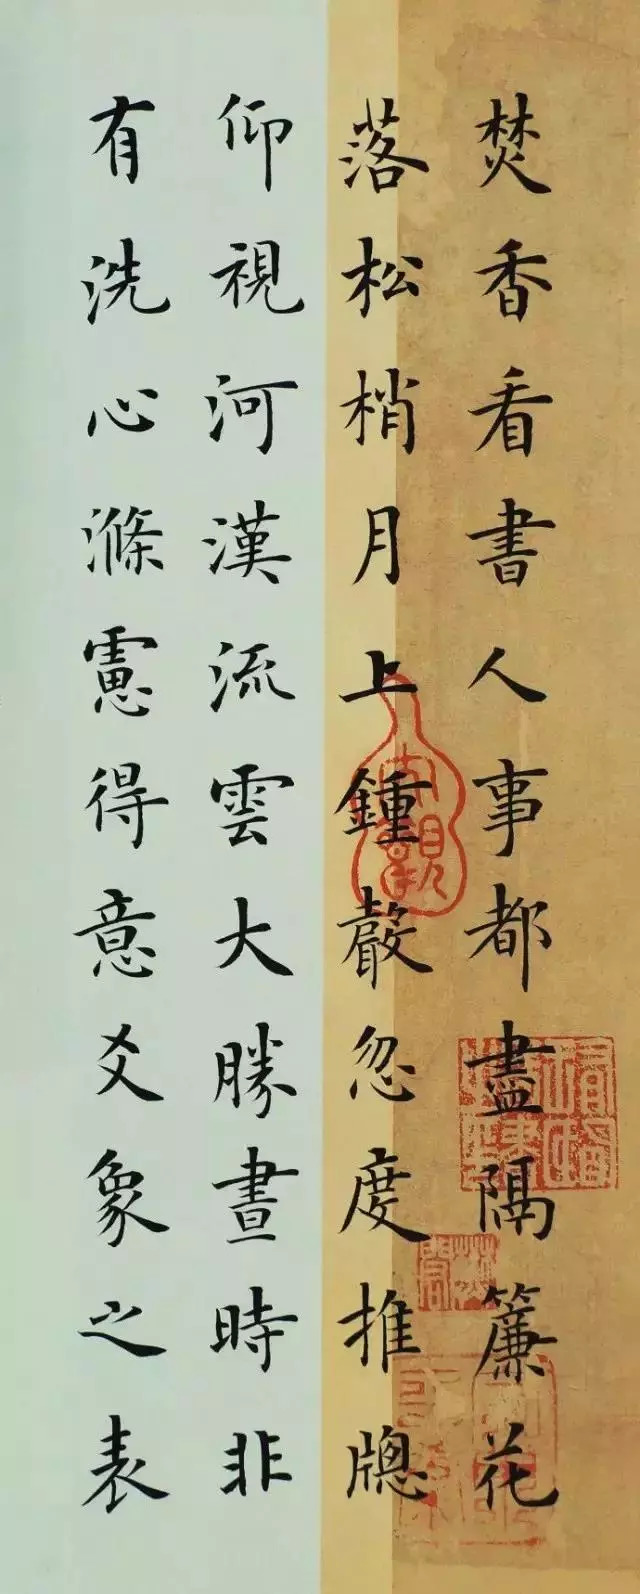 焚香看書人事都盡隔簾花
落松梢月上鍾聲忽度推牕
仰視河漢流雲大勝晝時非
有洗心滌慮得意爻象之表